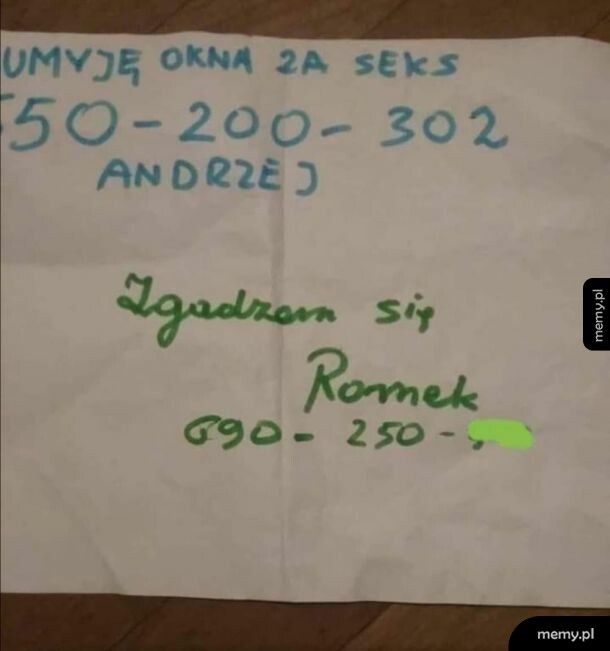 UMYJĘ OKNA ZA SEKS
50-200-302
ANDRZEJ
Zgadzam się
Romek
690-250-
memy.pl
memy.pl